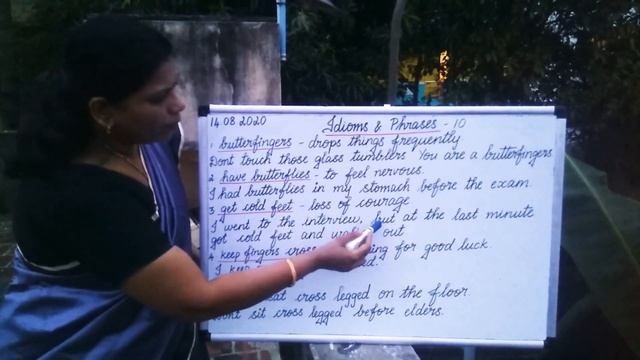 14 08 2020 Idioms & Phrases - 10
1 butterfingers - drops things frequently
Dont touch those glass tumblers You are a butterfingers
2 have butterflies - to feel nervous.
I had butterflies in my stomach before the exam.
3 get cold feet - loss of courage
I went to the interview, but at the last minute
got cold feet and out
4 keep fingers for good luck.
I
cross legged on the floor.
sit cross legged before elders.